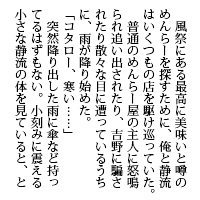 風祭にある最高に美味いと噂の
めんらーを探すために、俺と静流
はいくつもの店を駆け巡っていた。
　普通のめんらー屋の主人に怒鳴
られ追い出されたり、吉野に騙さ
れたり散々な目に遭っているうち
に、雨が降り始めた。
「コタロー、寒い……」
　突然降り出した雨に傘など持っ
てるはずもない。小刻みに震える
小さな静流の体を見ていると、と